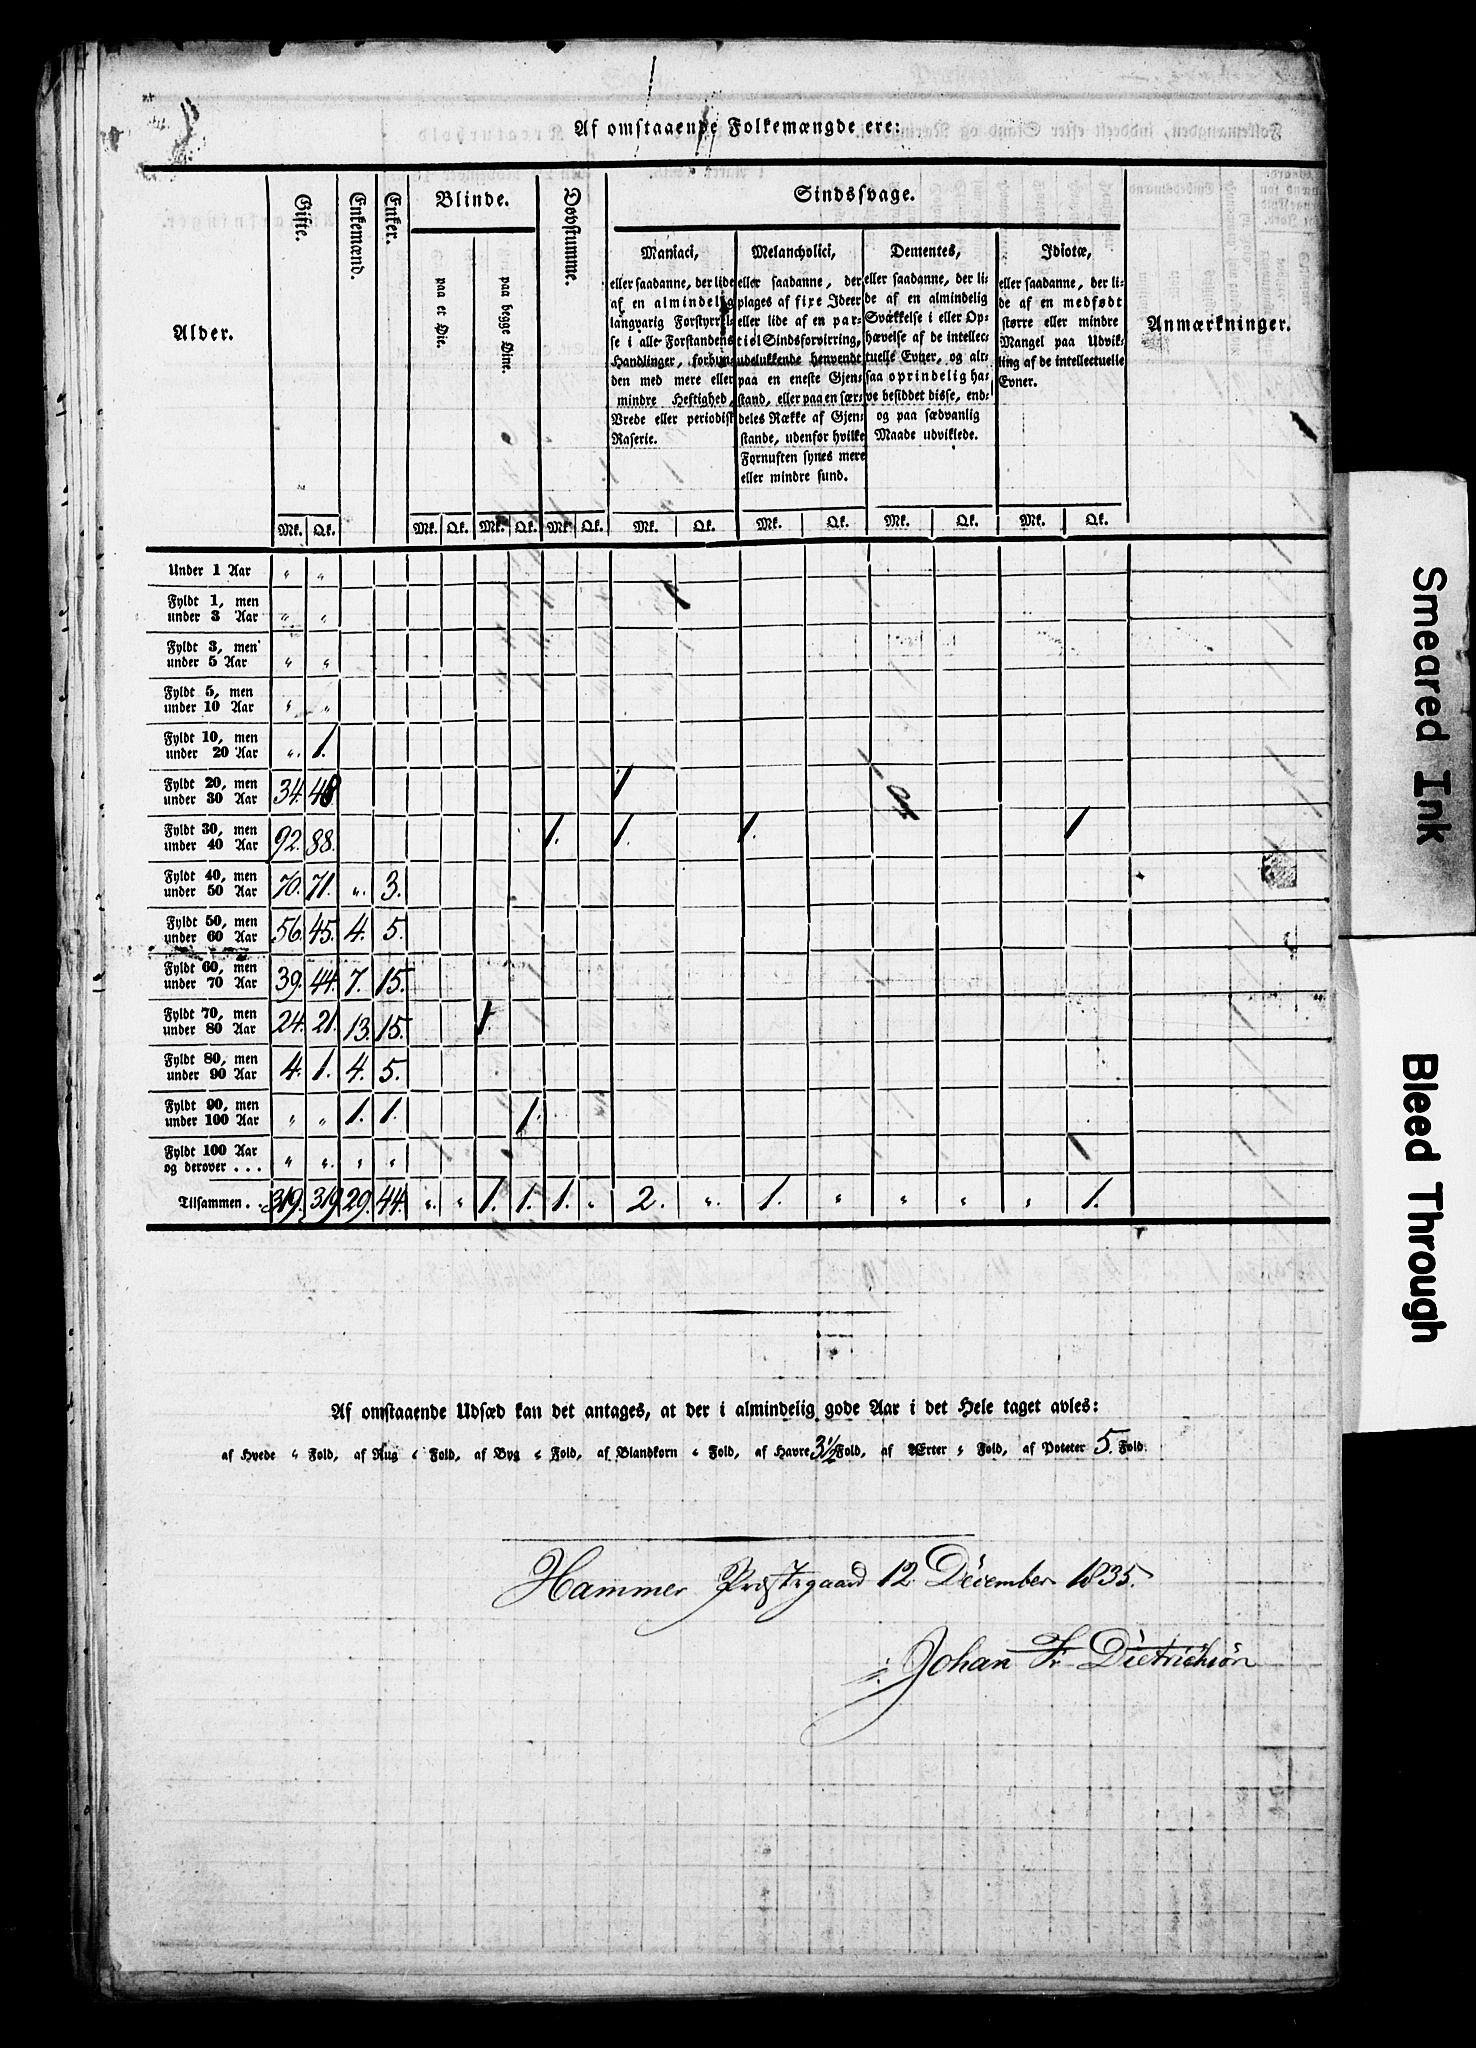 Af omstaaende Folkemængde ere:
Alder. Gifte. Enkemænd. Enker. Blinde. Døvstumme. Sindssvage. Anmærkninger.
paa et Øie. paa begge Øine.
Maniaci,
eller saadanne, der lide
af en almindelig
langvarig Forstyrrel-
se i alle Forstandens
Handlinger, forbun-
den med mere eller
mindre Heftighed,
Vrede eller periodisk
Raserie.
Melancholici,
eller saadanne, der
plages af fixe Ideer
eller lide af en par-
tiel Sindsforvirring,
udelukkende henvendt
paa en eneste Gjen-
stand, eller paa en sær-
deles Række af Gjen-
stande, udenfor hvilke
Fornuften synes mere
eller mindre sund.
Dementes,
eller saadanne, der li-
de af en almindelig
Svækkelse i eller Op-
hævelse af de intellec-
tuelle Evner, og alt-
saa oprindelig ha-
ve besiddet disse, end-
og paa sædvanlig
Maade udviklede.
Idiotæ,
eller saadanne, der li-
de af en medfødt
større eller mindre
Mangel paa Udvik-
ling af de intellectuelle
Evner.
Mk. Qk. Mk. Qk. Mk. Qk. Mk. Qk. Mk. Qk. Mk. Qk. Mk. Qk. Mk. Qk.
Under 1 Aar " "
Fyldt 1, men
under 3 Aar " "
Fyldt 3, men
under 5 Aar " "
Fyldt 5, men
under 10 Aar " "
Fyldt 10, men
under 20 Aar ". 1.
Fyldt 20, men
under 30 Aar 34. 48 1
Fyldt 30, men
under 40 Aar 92. 88. 1. 1. 1. 1
Fyldt 40, men
under 50 Aar 70. 71. ". 3.
Fyldt 50, men
under 60 Aar 56. 45. 4. 5.
Fyldt 60, men
under 70 Aar 39. 44. 7. 15.
Fyldt 70, men
under 80 Aar 24. 21. 13. 15. 1.
Fyldt 80, men
under 90 Aar 4. 1. 4. 5.
Fyldt 90, men
under 100 Aar " " 1. 1. 1.
Fyldt 100 Aar
og derover . . . " ". " "
Tilsammen . . 319. 319 29. 44. ". " 1. 1. 1. " 2. ". 1. " " " " 1.
Af omstaaende Udsæd kan det antages, at der i almindelig gode Aar i det Hele taget avles:
af Hvede " Fold, af Rug " Fold, af Byg " Fold, af Blandkorn " Fold, af Havre 3½ Fold, af Ærter " Fold, af Poteter 5. Fold.
Hammer Præstegaard 12 December 1835.
Johan Fr Dietrichson
Smeared Ink
Bleed Through